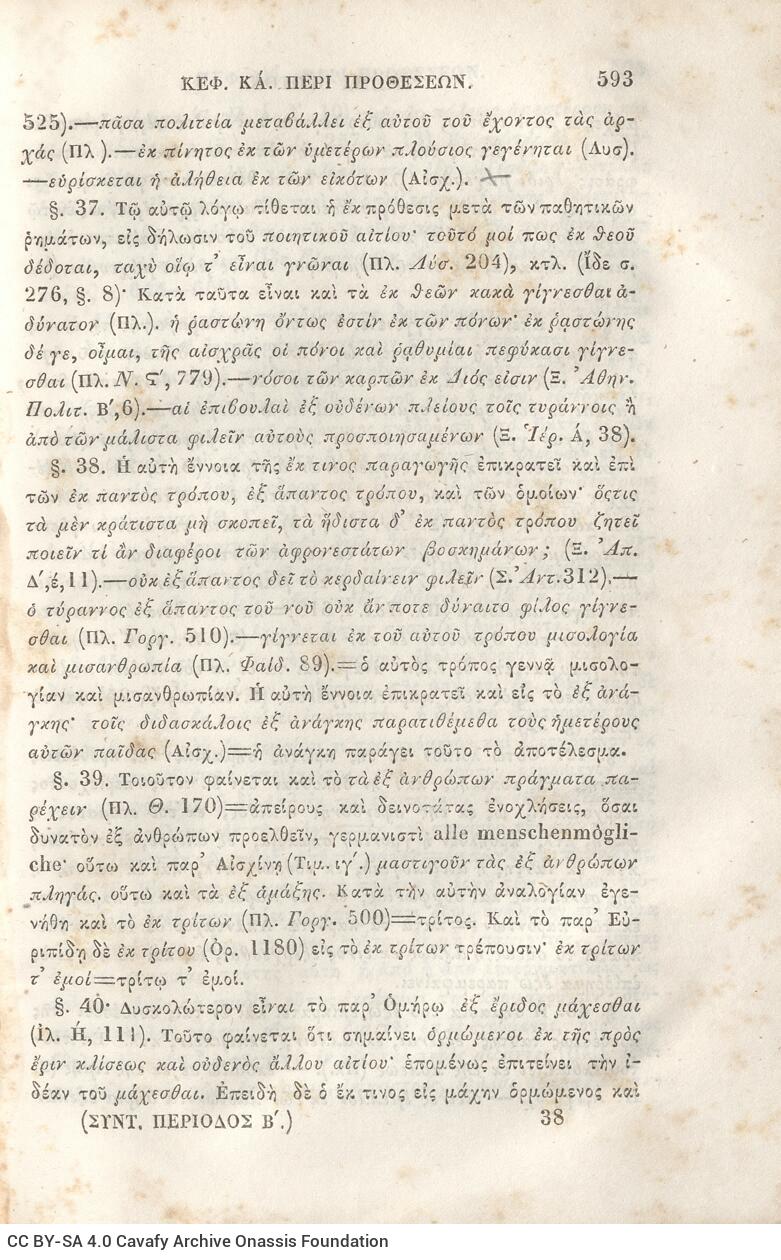 ΚΕΦ. ΚΆ. ΠΕΡΙ ΠΡΟΘΕΣΕΩΝ. 593
525).—πᾶσα πολιτεία μεταβάλλει ἐξ αὐτοῦ τοῦ ἔχοντος τὰς ἀρ-
χάς (Πλ ).—ἐκ πίνητος ἐκ τῶν ὑμετέρων πλούσιος γεγένηται (Λυσ).
—εὑρίσκεται ἡ ἀλήθεια ἐκ τῶν εἰκότων (Αἰσχ.).
§. 37. Τῷ αὐτῷ λόγῳ τίθεται ἡ ἐκ πρόθεσις μετὰ τῶν παθητικῶν
ῥημάτων, εἰς δήλωσιν τοῦ ποιητικοῦ αἰτίου· τοῦτό μοί πως ἐκ θεοῦ
δέδοται, ταχὺ οἵῳ τ' εἶναι γνῶναι (Πλ. Λύσ. 204), κτλ. (Ἴδε σ.
276, §. 8)· Κατὰ ταῦτα εἶναι καὶ τὰ ἐκ θεῶν κακὰ γίγνεσθαι ἀ-
δύνατον (Πλ.). ἡ ῥαστώνη ὄντως ἐστὶν ἐκ τῶν πόνων· ἐκ ῥᾳστώνης
δέ γε, οἶμαι, τῆς αἰσχρᾶς οἱ πόνοι καὶ ῥᾳθυμίαι πεφύκασι γίγνε-
σθαι (Πλ. Ν. ϛ', 779).—νόσοι τῶν καρπῶν ἐκ Διός εἰσιν (Ξ. Ἀθην.
Πολιτ. Β',6).—αἱ ἐπιβουλαὶ ἐξ οὐδένων πλείους τοῖς τυράννοις ἢ
ἀπὸ τῶν μάλιστα φιλεῖν αὐτοὺς προσποιησαμένων (Ξ. Ἱέρ. Ά, 38).
§. 38. Ἡ αὐτὴ ἔννοια τῆς ἔκ τινος παραγωγῆς ἐπικρατεῖ καὶ ἐπὶ
τῶν ἐκ παντὸς τρόπου, ἐξ ἅπαντος τρόπου, καὶ τῶν ὁμοίων· ὅςτις
τὰ μὲν κράτιστα μὴ σκοπεῖ, τὰ ἥδιστα δ' ἐκ παντὸς τρόπου ζητεῖ
ποιεῖν τί ἂν διαφέροι τῶν ἀφρονεστάτων βοσκημάνων; (Ξ. Ἀπ.
Δ',έ,11).—οὐκ ἐξ ἅπαντος δεῖ τὸ κερδαίνειν φιλεῖν (Σ. Ἀντ.312).—
ὁ τύραννος ἐξ ἅπαντος τοῦ νοῦ οὐκ ἄν ποτε δύναιτο φίλος γίγνε-
σθαι (Πλ. Γοργ. 510).—γίγνεται ἐκ τοῦ αὐτοῦ τρόπου μισολογία
καὶ μισανθρωπία (Πλ. Φαίδ. 89).=ὁ αὐτὸς τρόπος γεννᾷ μισολο-
γίαν καὶ μισανθρωπίαν. Ἡ αὐτὴ ἔννοια ἐπικρατεῖ καὶ εἰς τὸ ἐξ ἀνά-
γκης· τοῖς διδασκάλοις ἐξ ἀνάγκης παρατιθέμεθα τοὺς ἡμετέρους
αὐτῶν παῖδας (Αἰσχ.)=ἡ ἀνάγκη παράγει τοῦτο τὸ ἀποτέλεσμα.
§. 39. Τοιοῦτον φαίνεται καὶ τὸ τὰ ἐξ ἀνθρώπων πράγματα πα-
ρέχειν (Πλ. Θ. 170)=ἀπείρους καὶ δεινοτάτας ἐνοχλήσεις, ὅσαι
δυνατὸν ἐξ ἀνθρώπων προελθεῖν, γερμανιστὶ alle menschenmögli-
che· οὕτω καὶ παρ' Αἰσχίνῃ (Τιμ. ιγ'.) μαστιγοῦν τὰς ἐξ ἀνθρώπων
πληγάς. οὕτω καὶ τὰ ἐξ ἁμάξης. Κατὰ τὴν αὐτὴν ἀναλογίαν ἐγε-
νήθη καὶ τὸ ἐκ τρίτων (Πλ. Γοργ. 500)=τρίτος. Καὶ τὸ παρ' Εὐ-
ριπίδῃ δὲ ἐκ τρίτου (Ὀρ. 1180) εἰς τὸ ἐκ τρίτων τρέπουσιν· ἐκ τρίτων
τ' ἐμοί=τρίτῳ τ' ἐμοί.
§. 40· Δυσκολώτερον εἶναι τὸ παρ' Ὁμήρῳ ἐξ ἔριδος μάχεσθαι
(Ἰλ. Ἡ, 111). Τοῦτο φαίνεται ὅτι σημαίνει ὁρμώμενοι ἐκ τῆς πρὸς
ἔριν κλίσεως καὶ οὐδενὸς ἄλλου αἰτίου· ἑπομένως ἐπιτείνει τὴν ἰ-
δέαν τοῦ μάχεσθαι. Ἐπειδὴ δὲ ὁ ἔκ τινος εἰς μάχην ὁρμώμενος καὶ
(ΣΥΝΤ. ΠΕΡΙΟΔΟΣ Β'.) 38
CC BY-SA 4.0 Cavafy Archive Onassis Foundation